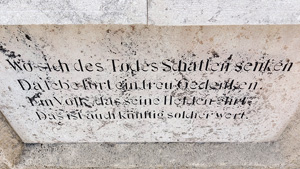 Wo sich des Todes Schatten senken
Da lebe fort ein treu Gedenken.
Ein Volk, das seine Helden ehrt,
Das ist auch künftig solcher wert.